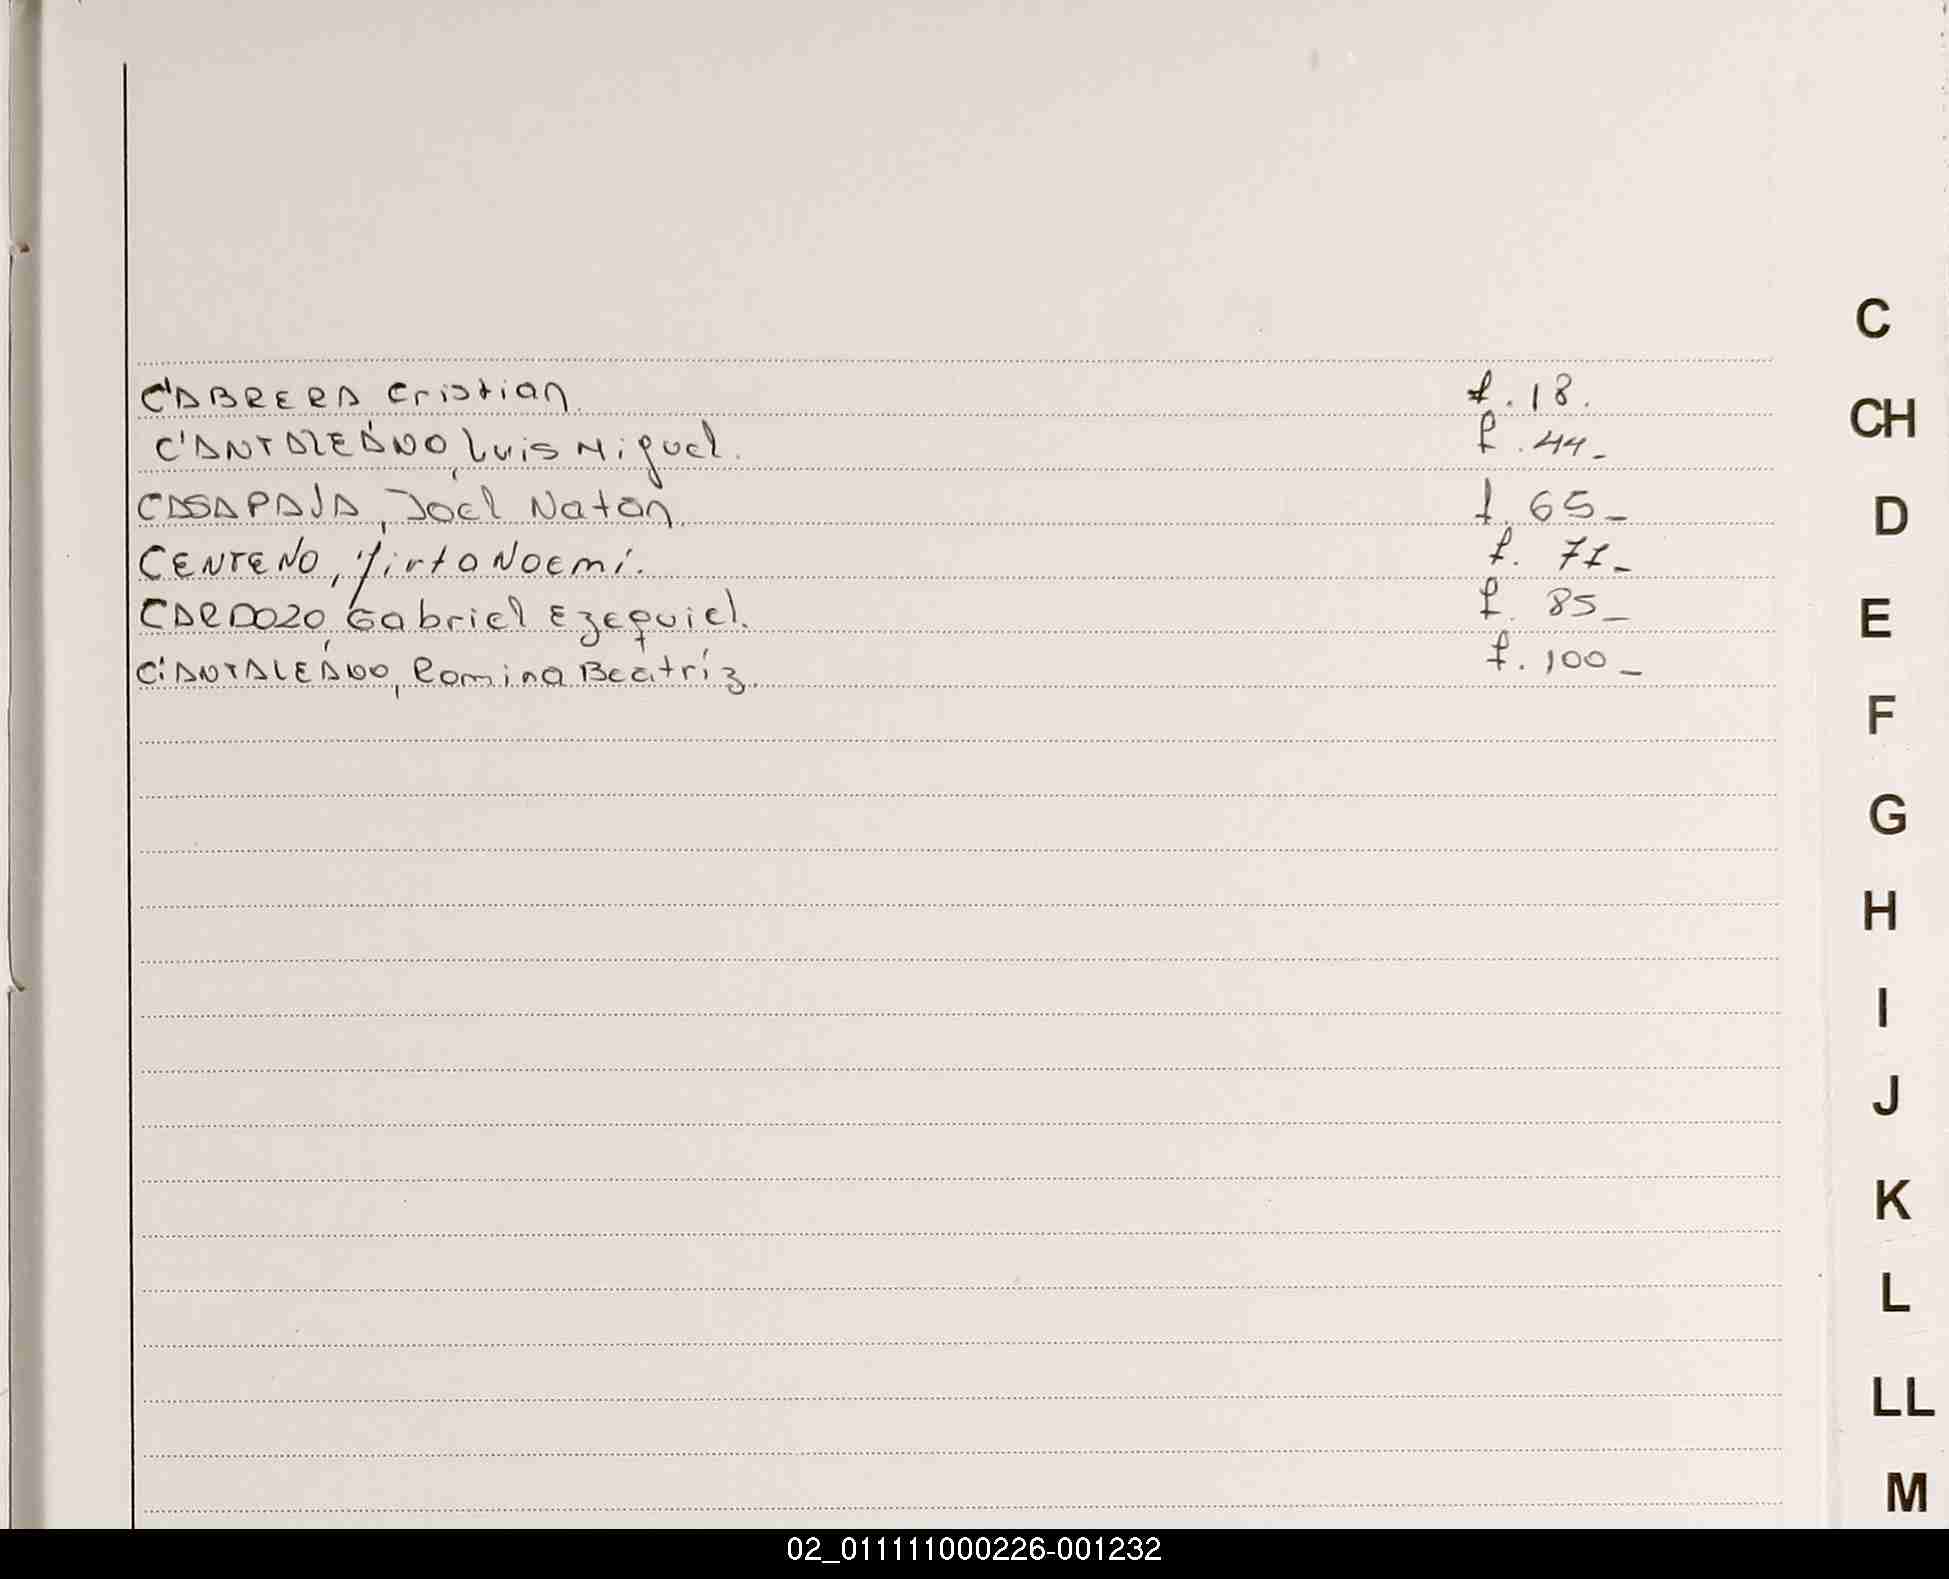 CABRERA Cristian. f. 18.
CANTALEÁNO, Luis Miguel. f. 44_
CASAPAJA, Joel Natan. f. 65_
CENTENO, Mirta Noemí. f. 71_
CARDOZO, Gabriel Ezequiel. f. 85_
CANTALEÁNO, Romina Beatríz. f. 100_
C
CH
D
E
F
G
H
I
J
K
L
LL
M
02_011111000226-001232